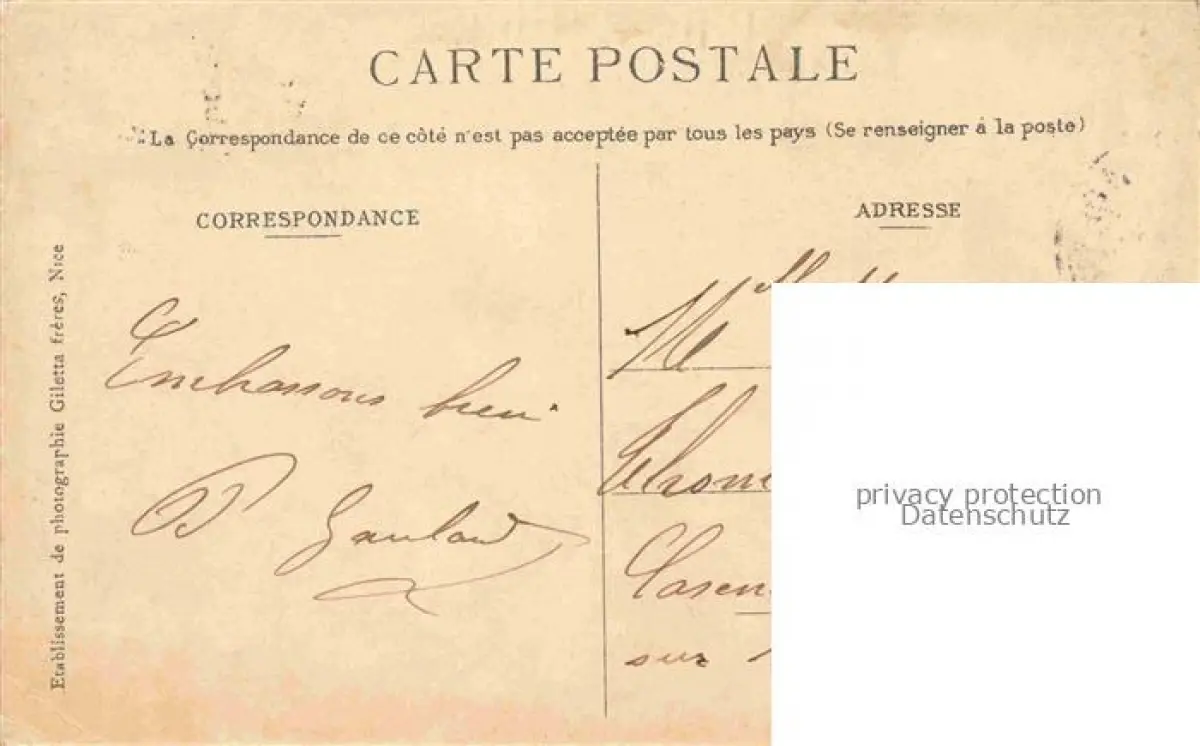 CARTE POSTALE
La Correspondance de ce côté n'est pas acceptée par tous les pays (Se renseigner à la poste)
CORRESPONDANCE
Embrassons bien.
Etablissement de photographie Giletta frères, Nice
ADRESSE
sur
privacy protection
Datenschutz